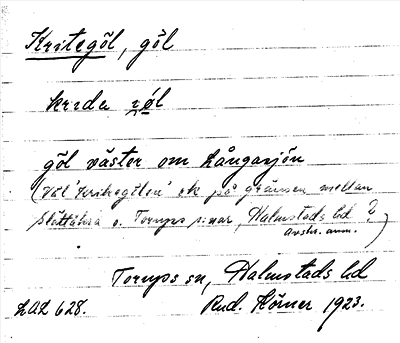 Kritegöl, göl
krɩde jøl
göl väster om Långasjön
(Väl 'Kritegölen' ek på gränsen mellan
Slättåkra o. Torups s:nar, Halmstads hd ?
avskr. anm. )
Torups sn, Halmstads hd
LAL 628. Rud. Körner 1923.